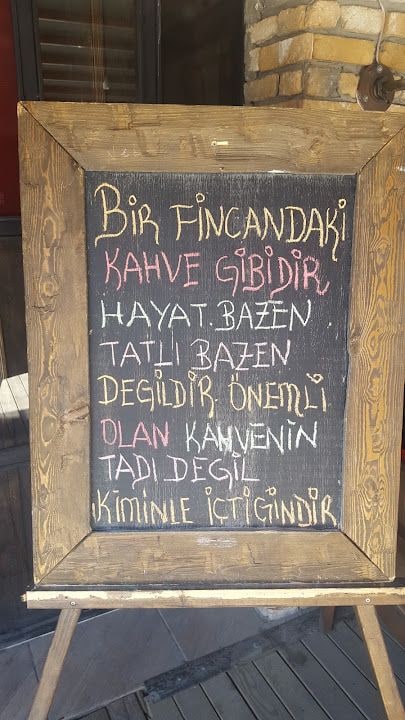 BİR FİNCANDAKİ
KAHVE GİBİDİR
HAYAT. BAZEN
TATLI BAZEN
DEGİLDİR. ÖNEMLİ
OLAN KAHVENİN
TADI DEGİL
KİMİNLE İÇTİGİNDİR